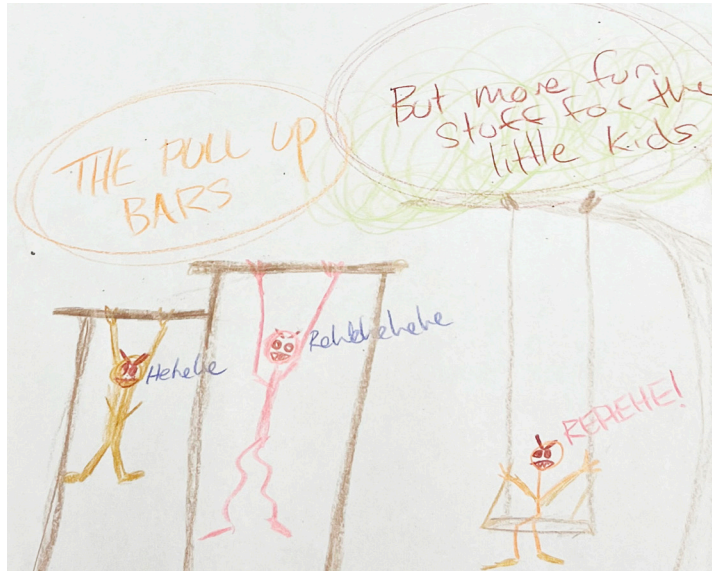 THE PULL UP
BARS
But more fun
stuff for the
little kids
Hehehe
Rehehehehe
REHEHE!